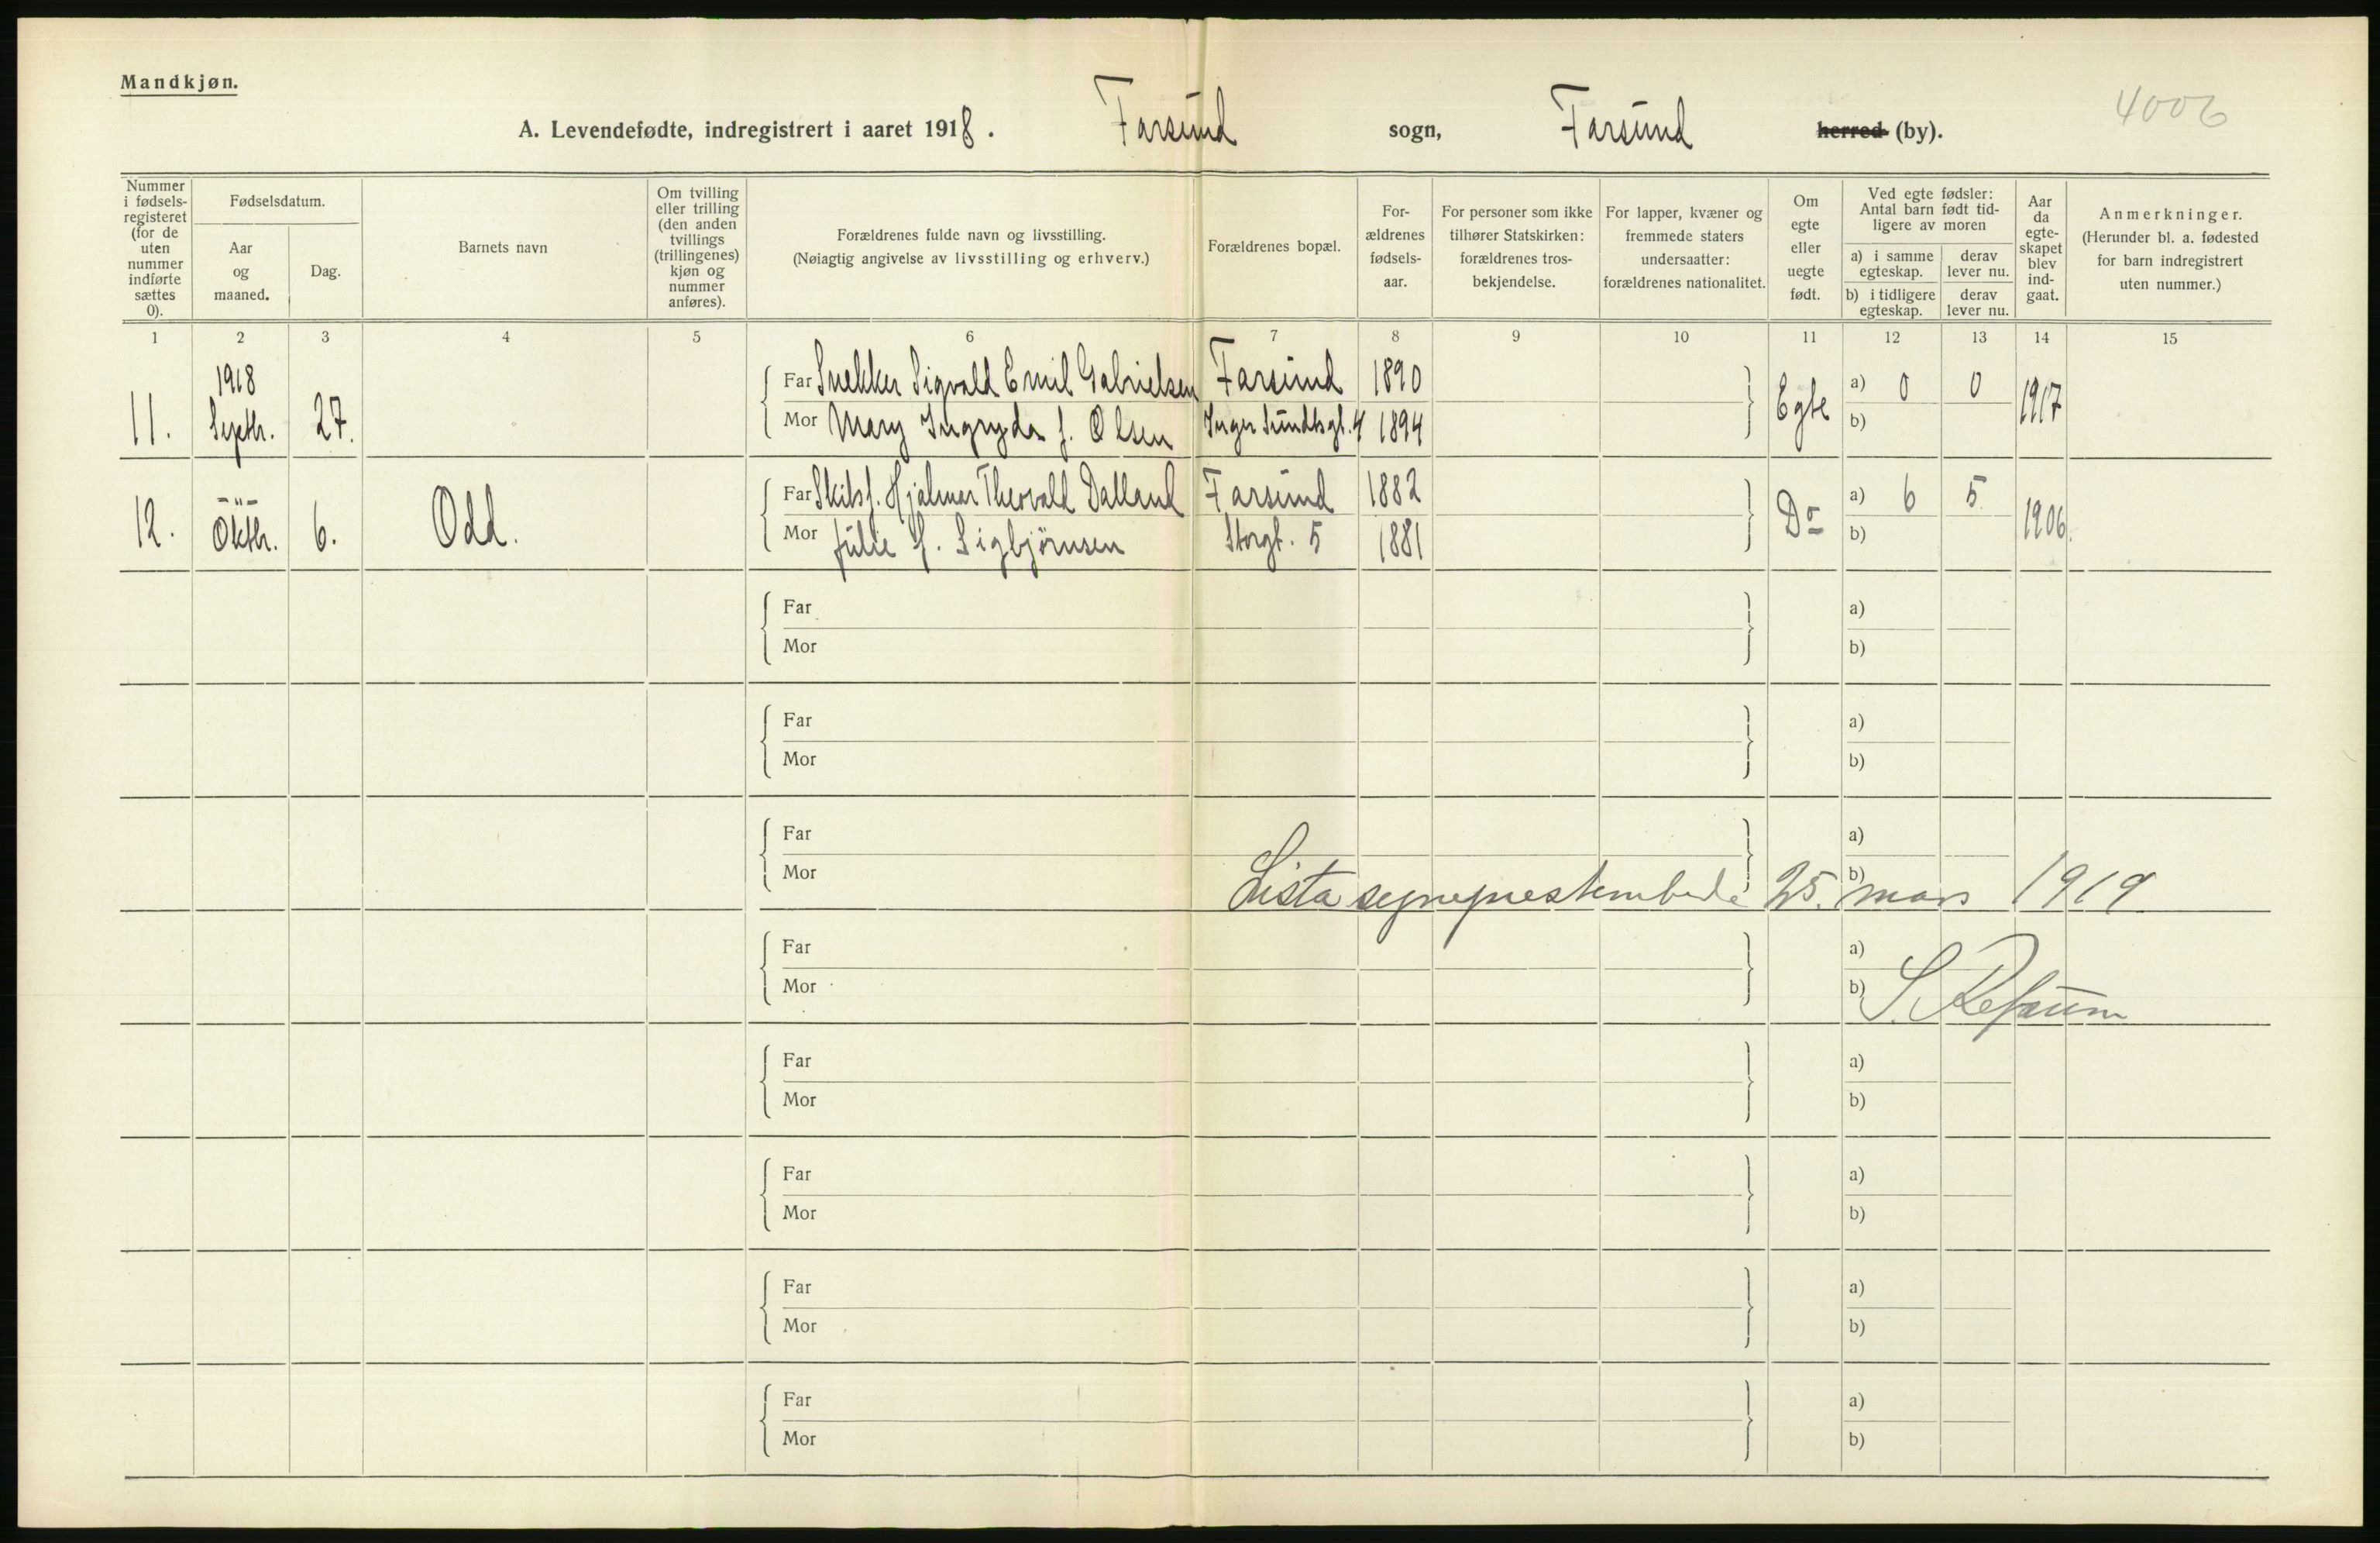 Mandkjøn.
4006
A. Levendefødte, indregistrert i aaret 1918. Farsund sogn, Farsund herred (by).
Nummer i fødsels-registeret (for de uten nummer indførte sættes 0).
Fødselsdatum.
Aar og maaned.
Dag.
Barnets navn
Om tvilling eller trilling (den anden tvillings (trillingenes) kjøn og nummer anføres).
Forældrenes fulde navn og livsstilling.
(Nøiagtig angivelse av livsstilling og erhverv.)
Forældrenes bopæl.
For-ældrenes fødsels-aar.
For personer som ikke tilhører Statskirken: forældrenes tros-bekjendelse.
For lapper, kvæner og fremmede staters undersaatter: forældrenes nationalitet.
Om egte eller uegte født.
Ved egte fødsler: Antal barn født tid-ligere av moren
a) i samme egteskap.
derav lever nu.
b) i tidligere egteskap.
derav lever nu.
Aar da egte-skapet blev ind-gaat.
Anmerkninger.
(Herunder bl. a. fødested for barn indregistrert uten nummer.)
1 2 3 4 5 6 7 8 9 10 11 12 13 14 15
1918
Far Snekker Sigvald Emil Gabrielsen Farsund 1890 a) 0 0
11. Septbr. 27. Egte 1917
Mor Mary Ingryda f. Olsen Inger Sundtsgt. 4 1894 b)
-"-
Far Skibsf. Hjalmar Thorvald Dalland Farsund 1882 a) 6 5
12. Oktbr. 6. Odd. Do 1906.
Mor Julie f. Sigbjørnsen Storgt. 5 1881 b)
Far a)
Mor b)
Far a)
Mor b)
Far a)
Mor b)
Lista sogneprestembede 25. mars 1919
Far a)
Mor b)
S. Refsum
Far a)
Mor b)
Far a)
Mor b)
Far a)
Mor b)
Far a)
Mor b)